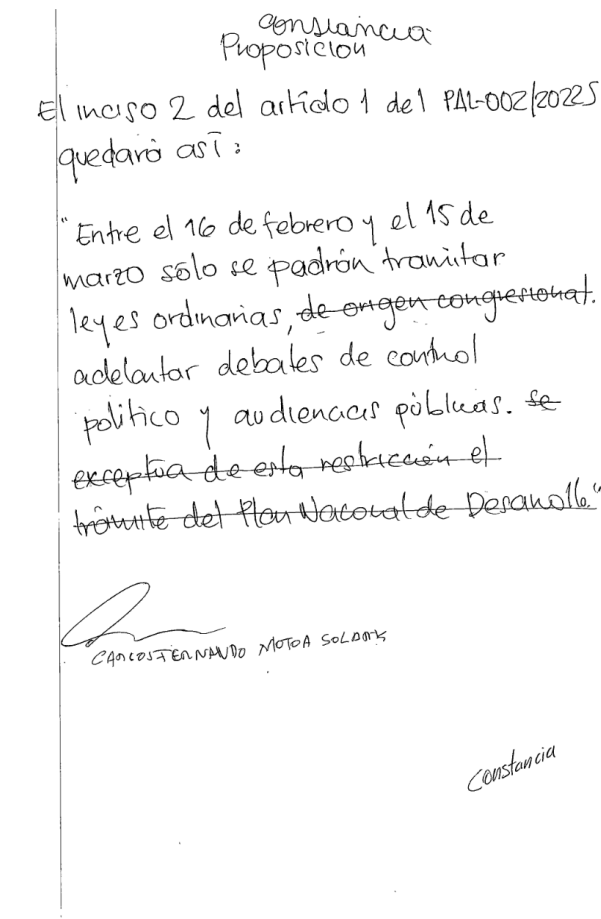 Constancia
Proposicion
El inciso 2 del artículo 1 del PAL-002/2022S
quedará así:
"Entre el 16 de febrero y el 15 de
marzo sólo se podrán tramitar
leyes ordinarias, de origen congresional.
adelantar debates de control
político y audiencias públicas. se
exceptúa de esta restricción el
trámite del Plan Nacional de Desarrollo."
CARLOS FERNANDO MOTOA SOLARTE
Constancia